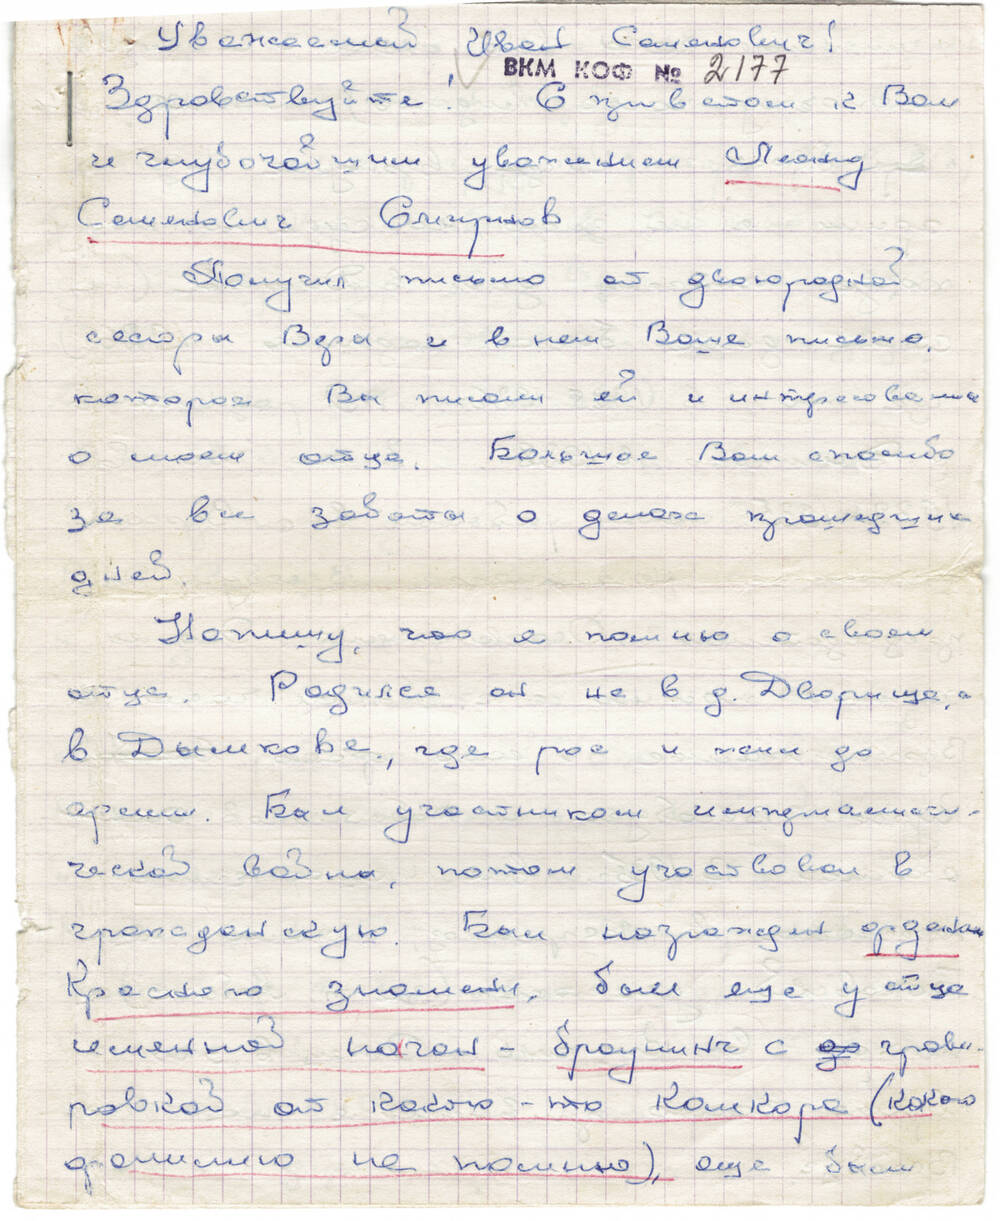 Уважаемый Иван Семенович!
ВКМ КОФ № 2177
Здравствуйте! С приветом к Вам
и глубочайшим уважением Леонид
Семенович Смирнов
Получил письмо от двоюродной
сестры Веры и в нем Ваше письмо,
которое Вы писали ей и интересовались
о моем отце. Большое Вам спасибо
за все заботы о делах прошедших
дней.
Напишу, что я помню о своем
отце. Родился он не в д. Дворище, а
в Дымкове, где рос и жил до
армии. Был участником империалисти-
ческой войны, потом участвовал в
гражданскую. Был награжден орденом
Красного знамени, был еще у отца
именной наган - браунинг с грави-
ровкой от какого-то Комкора (какого
фамилию не помню), еще был